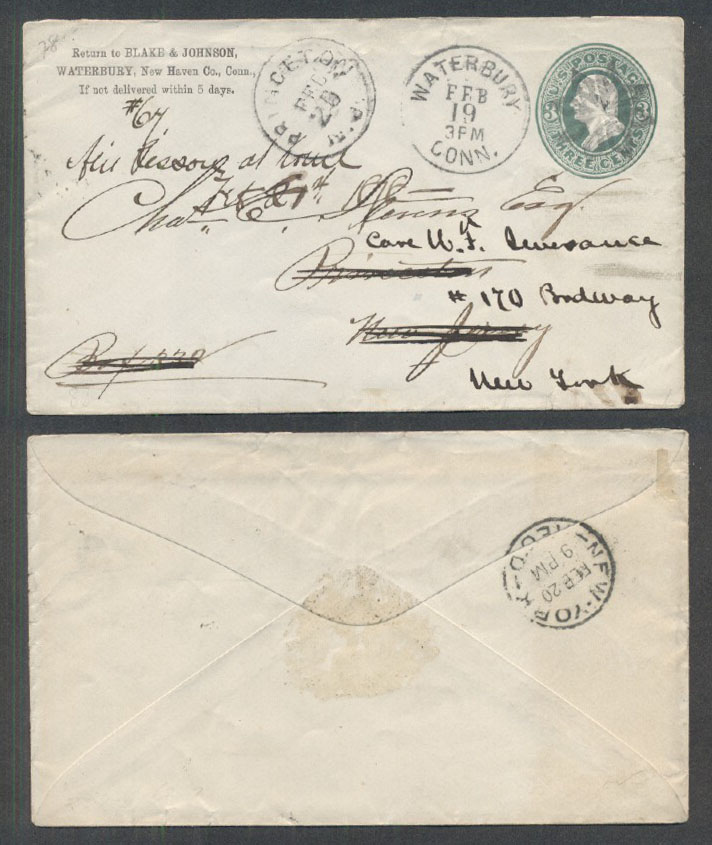 28
Return to BLAKE & JOHNSON,
WATERBURY, New Haven Co., Conn.,
If not delivered within 5 days.
PRINCETON N.J.
FEB
20
WATERBURY
FEB
19
3PM
CONN.
U.S. POSTAGE
3 3
THREE CENTS
#67
at
Chas. C. Esq.
Care W. F. Severance
Princeton
# 170 Brodway
New Jersey
Box
New York
NEW-YORK
FEB 20
9 PM
REC'D